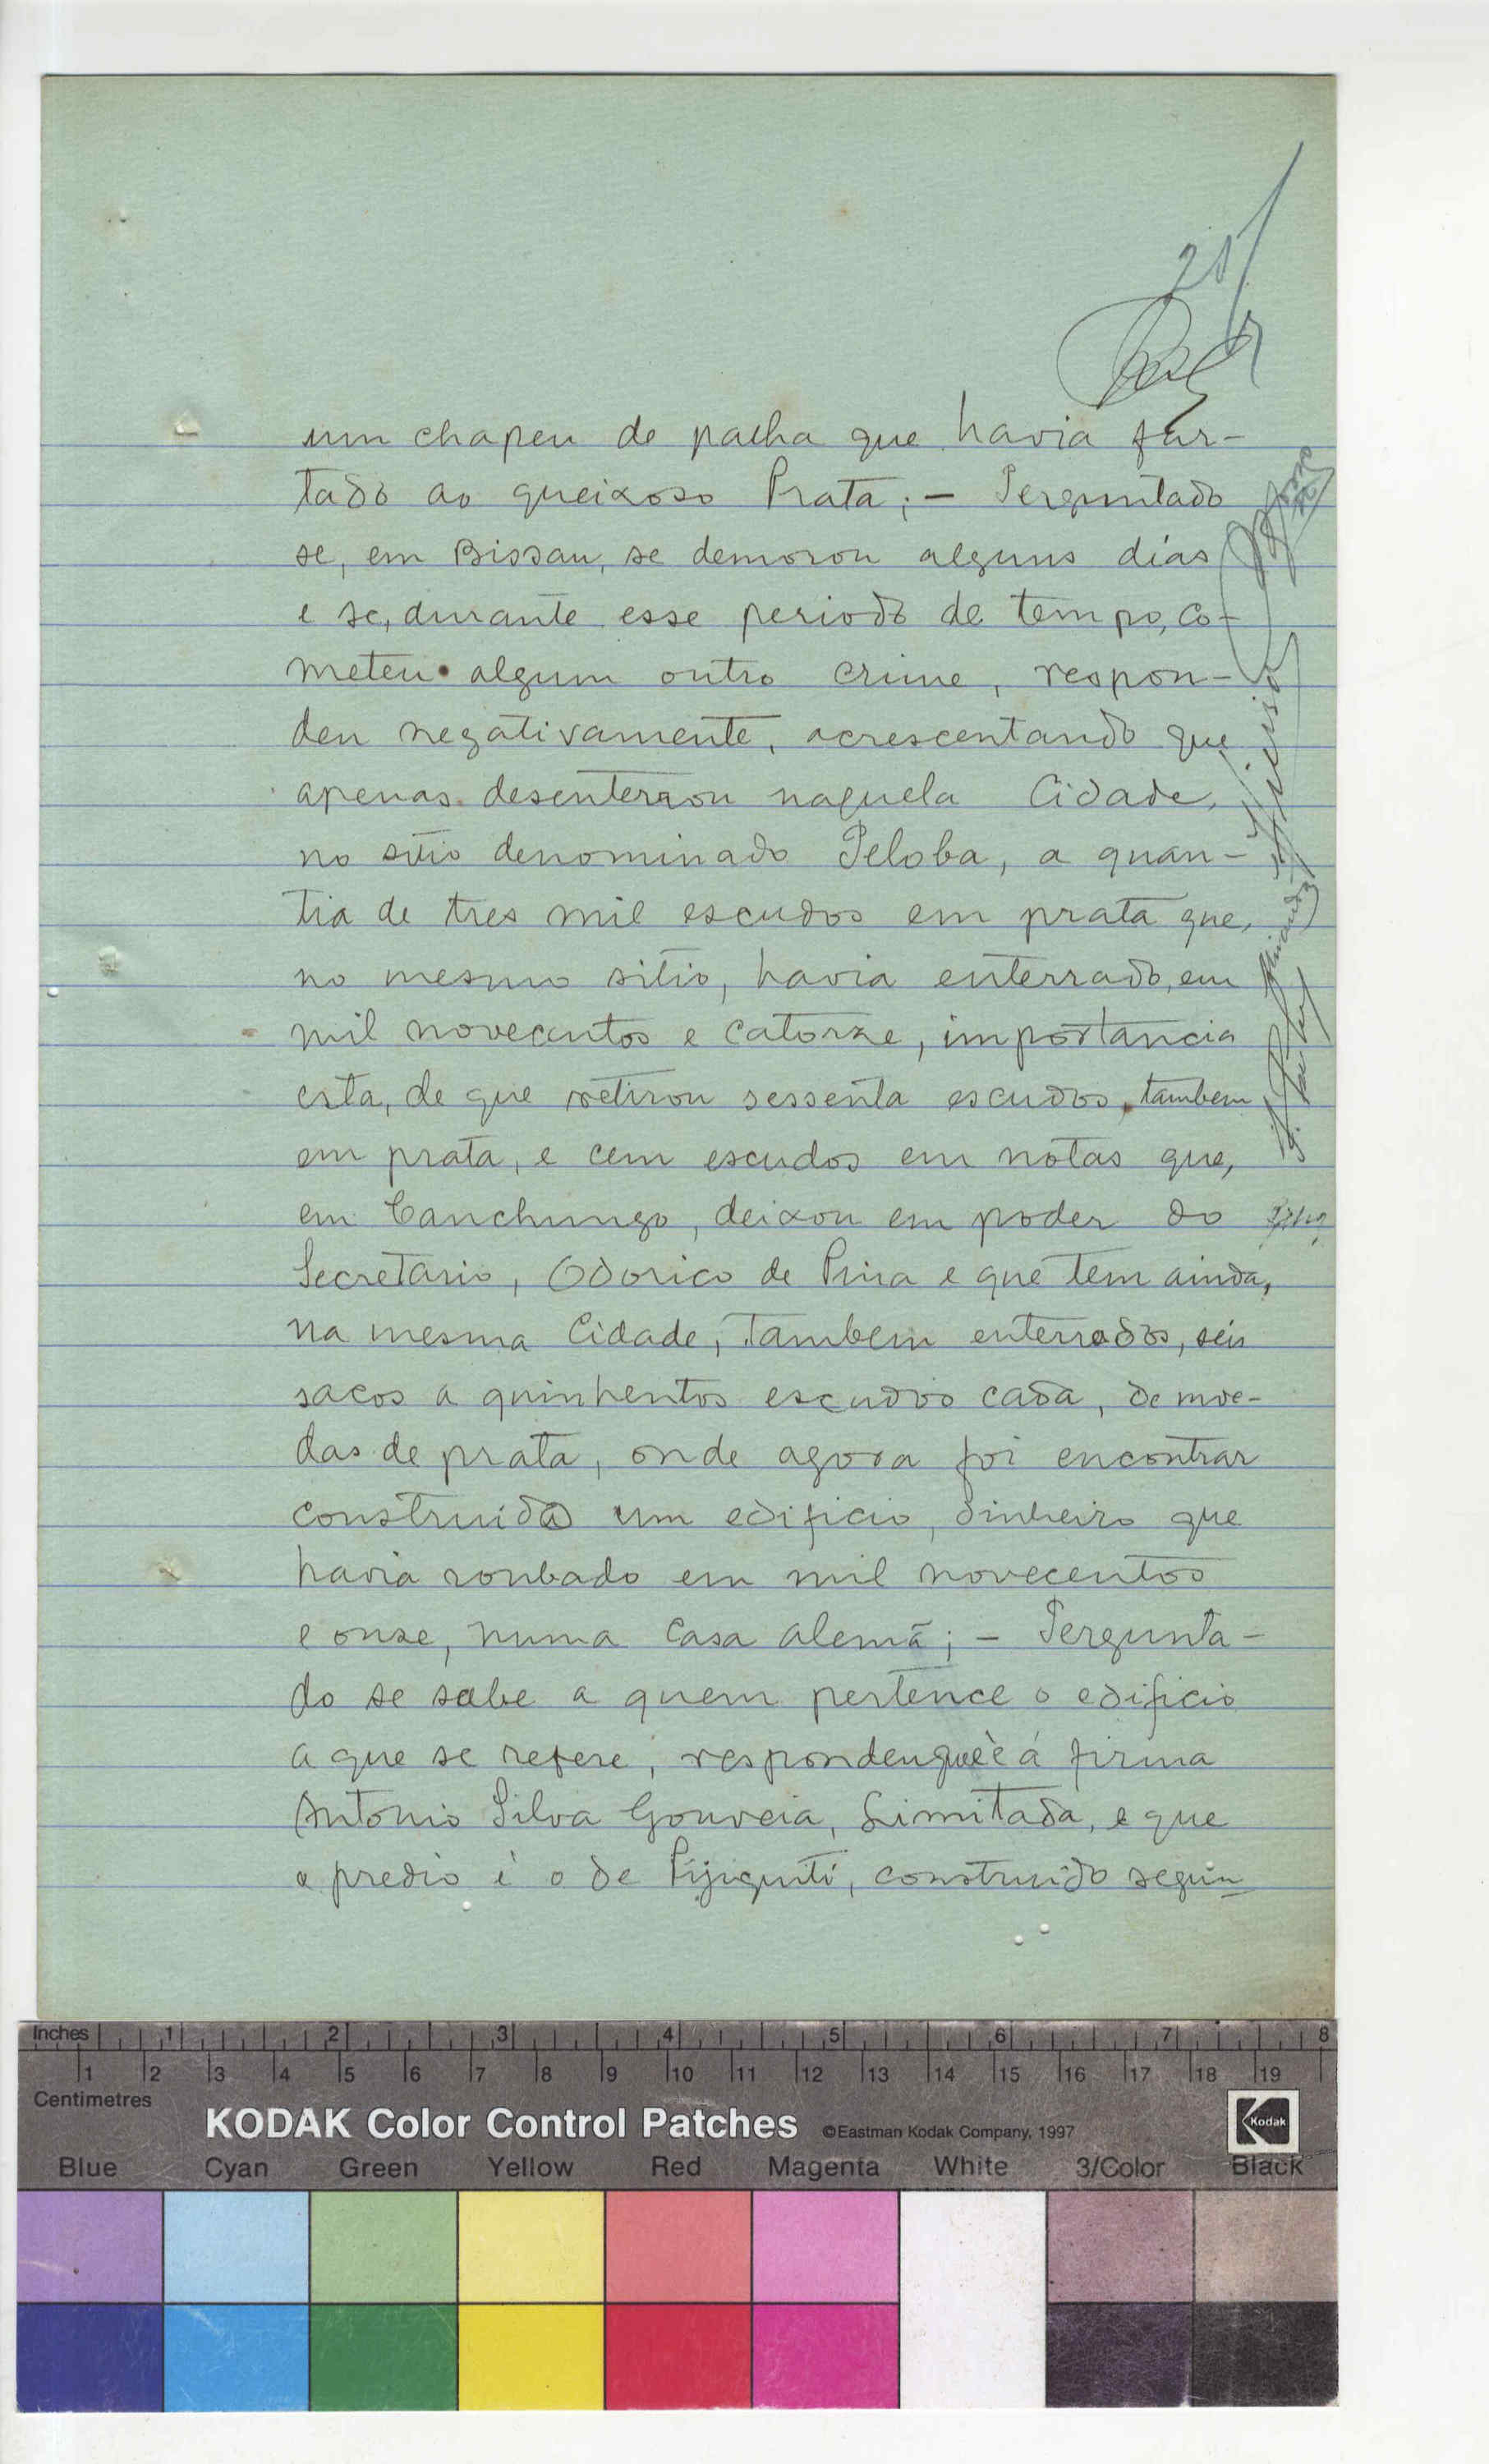 21
um chapeu de palha que havia fur-
tado ao queixoso Prata; - Perguntado
se, em Bissau, se demorou alguns dias
e se, durante esse periodo de tempo, co-
meteu algum outro crime, respon-
deu negativamente, acrescentando que
apenas desenterrou naquela Cidade,
no sitio denominado Peloba, a quan-
tia de tres mil escudos em prata que,
no mesmo sitio, havia enterrado, em
mil novecentos e catorze, importancia
esta, de que retirou sessenta escudos, tambem
em prata, e cem escudos em notas que,
em Canchungo, deixou em poder do
Secretario, Odorico de Pina e que tem ainda,
na mesma Cidade, tambem enterrados, seis
sacos a quinhentos escudos cada, de moe-
das de prata, onde agora foi encontrar
construido um edificio, dinheiro que
havia roubado em mil novecentos
e onze, numa casa alemã; - Pergunta-
do se sabe a quem pertence o edificio
a que se refere, respondeu que è á firma
Antonio Silva Gouveia, Limitada, e que
o predio é o de Pijiguiti, construido segun
Inches 1 2 3 4 5 6 7 8
1 2 3 4 5 6 7 8 9 10 11 12 13 14 15 16 17 18 19
Centimetres
KODAK Color Control Patches ©Eastman Kodak Company, 1997 Kodak
Blue Cyan Green Yellow Red Magenta White 3/Color Black